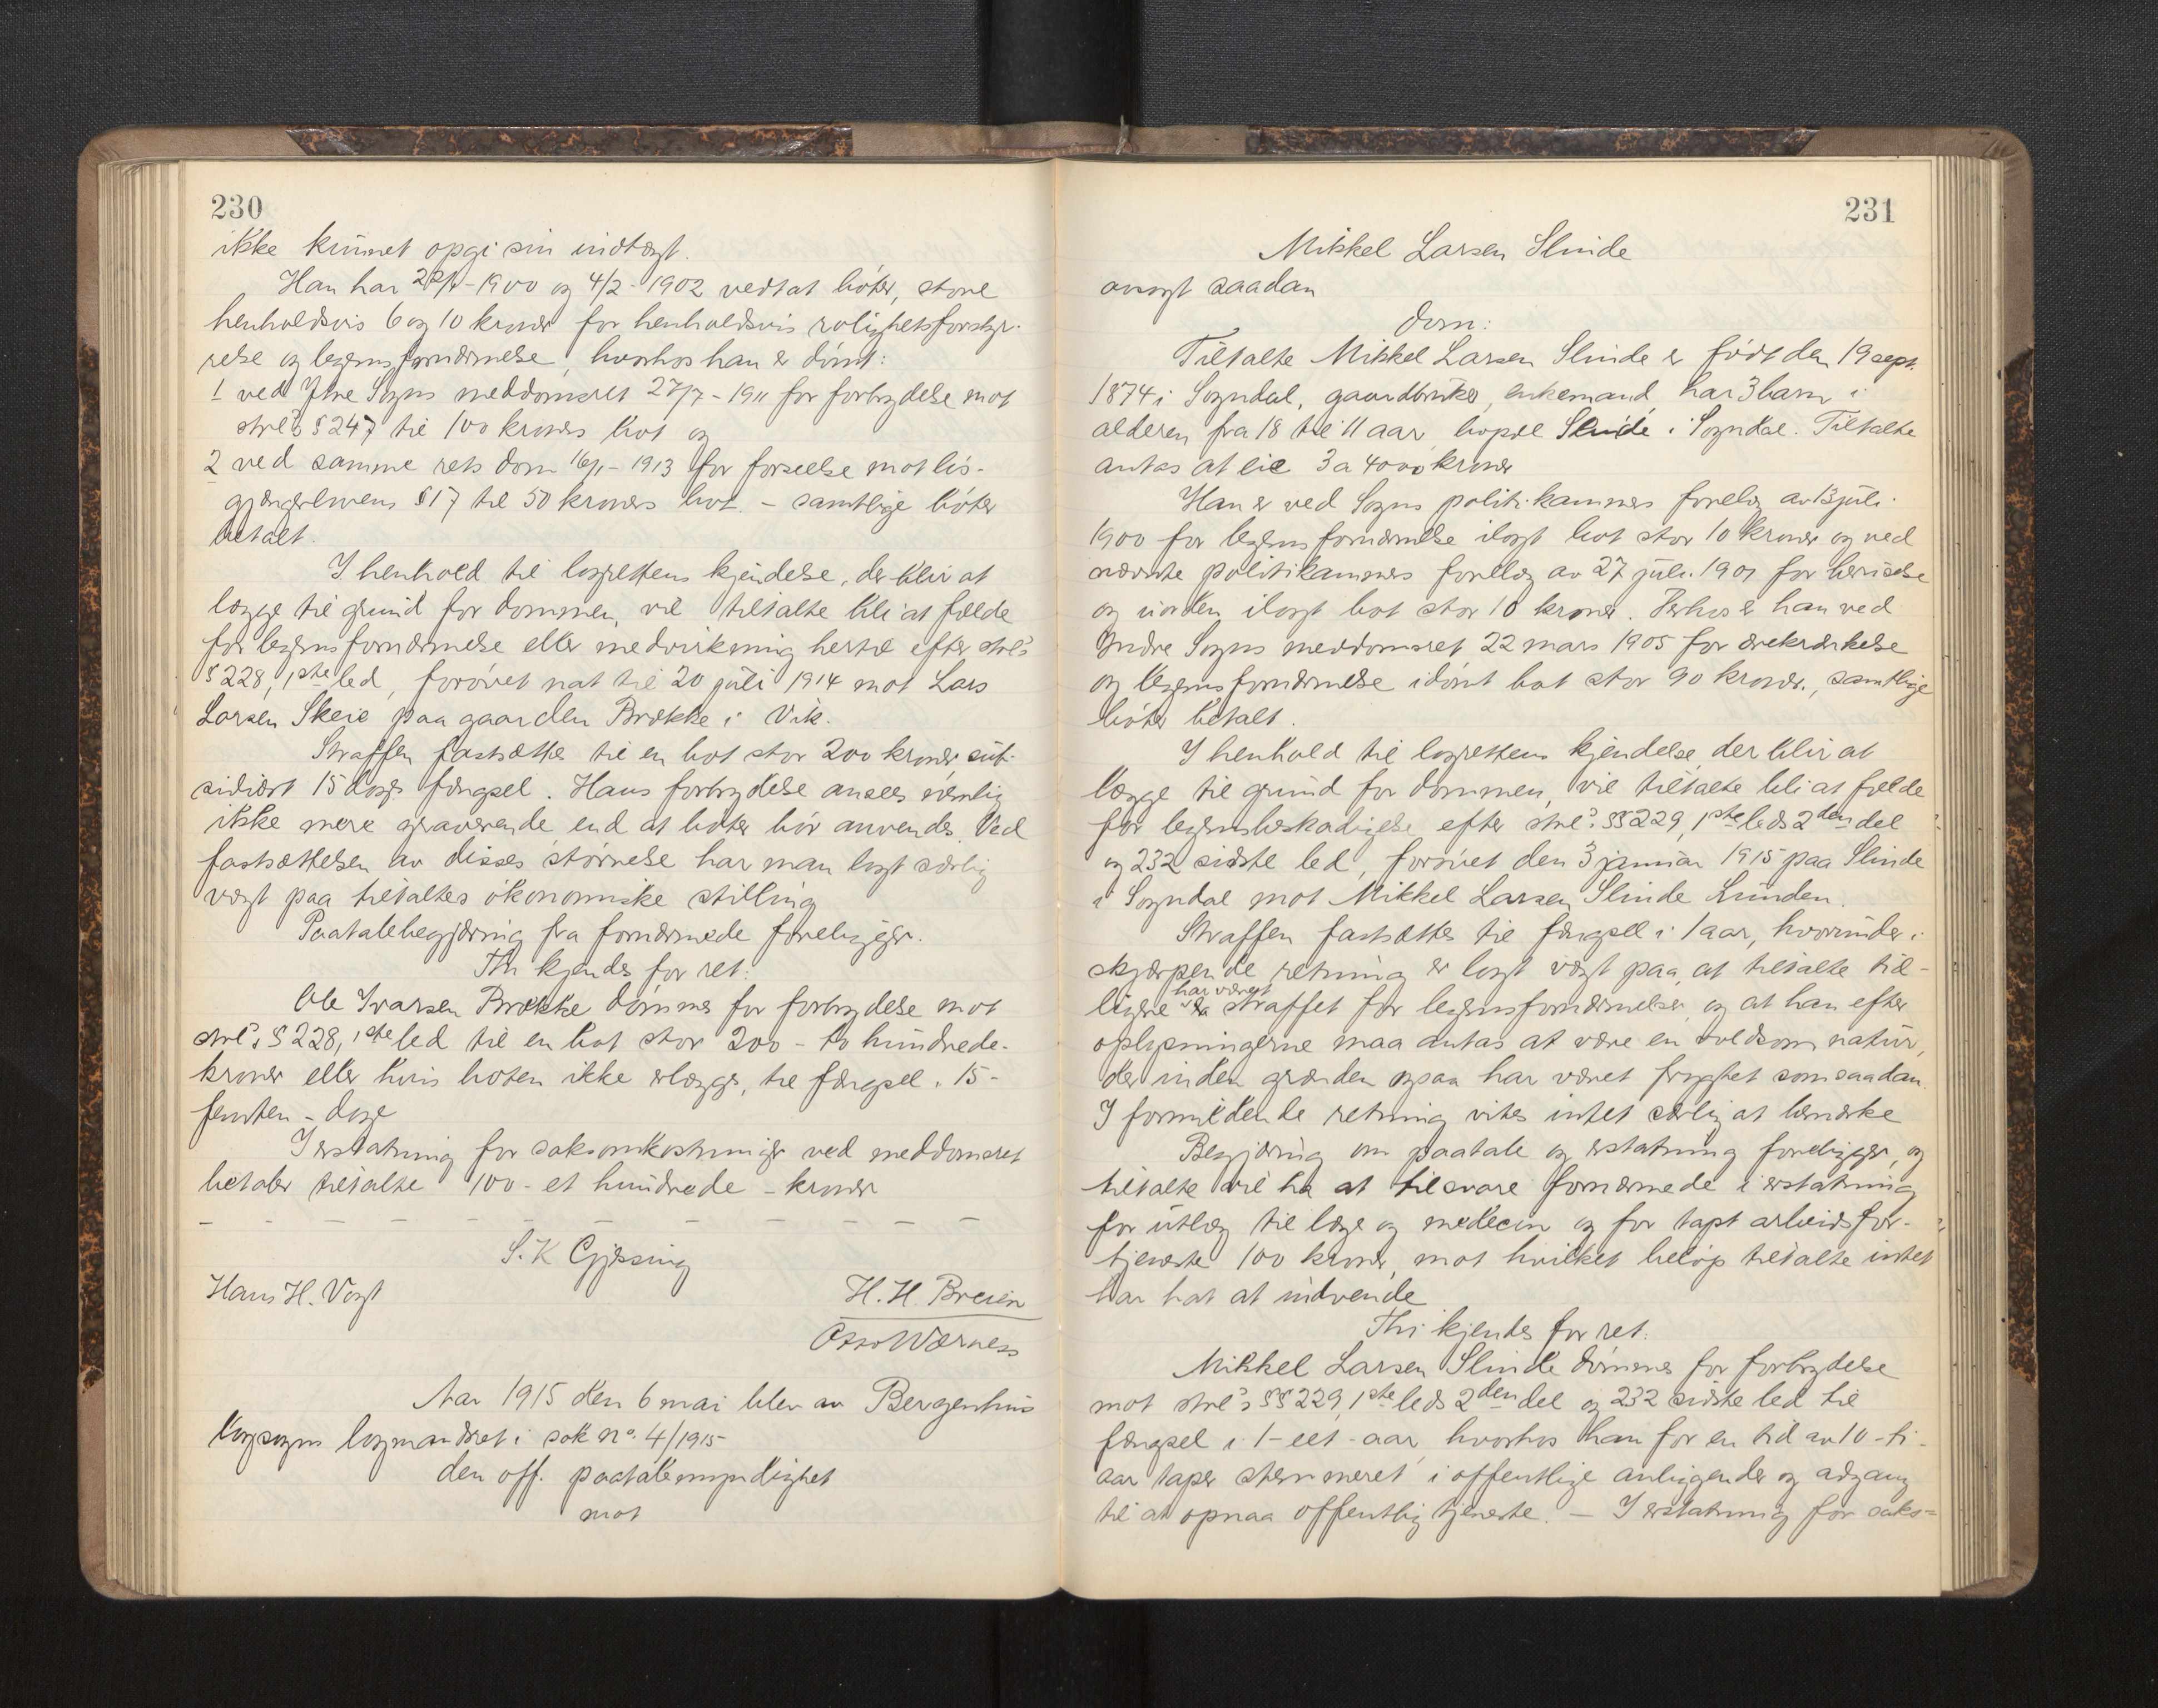 230
ikke kunnet opgi sin indtægt.
Han har 22/4-1900 og 4/2-1902 vedtat bøter, store
henholdsvis 6 og 10 kroner for henholdsvis rolighetsforstyr-
relse og legemsfornærmelse, hvorhos han er dømt:
1 ved Ytre Sogns meddomsret 27/7-1911 for forbrydelse mot
strl's § 247 til 100 kroners bot og
2 ved samme rets dom 16/1-1913 for forseelse mot løs-
gjængerlovens §17 til 50 kroners bot - samtlige bøter
betalt.
I henhold til lagrettens kjendelse, der blir at
lægge til grund for dommen, vil tiltalte bli at fælde
for legemsfornærmelse eller medvirkning hertil efter strl's
§ 228, 1ste led, forøvet nat til 20 juli 1914 mot Lars
Larsen Skeie paa gaarden Brække i Vik.
Straffen fastsættes til en bot stor 200 kroner, sub-
sidiært 15 dages fængsel. Hans forbrydelse ansees nemlig
ikke mere graverende end at bøter bør anvendes. Ved
fastsættelsen av disses størrelse har man lagt særlig
vægt paa tiltaltes økonomiske stilling
Paatalebegjæring fra fornærmede foreligger.
Thi kjendes for ret:
Ole Ivarsen Brække dømmes for forbrydelse mot
strl's § 228, 1ste led til en bot stor 200 - to hundrede-
kroner eller hvis boten ikke erlægges, til fængsel i 15-
femten - dage
I erstatning for saksomkostninger ved meddomsret
betaler tiltalte 100 - et hundrede - kroner
- - - - - - - - - - - - -
S. K Gjessing
Hans H. Vogt H. H. Breien
Otto Wærness
Aar 1915 den 6 mai blev av Bergenhus
lagsogns lagmandsret i sak No. 4/1915
den off. paatalemyndighet
mot
231
Mikkel Larsen Slinde
avsagt saadan
dom:
Tiltalte Mikkel Larsen Slinde er født den 19 sept.
1874 i Sogndal, gaardbruker, enkemand, har 3 barn i
alderen fra 18 til 11 aar, bopæl Slinde i Sogndal. Tiltalte
antas at eie 3 a 4000 kroner
Han er ved Sogns politikammers forelæg av 13 juli
1900 for legemsfornærmelse ilagt bot stor 10 kroner og ved
nævnte politikammers forelæg av 27 juli 1901 for beruselse
og uorden ilagt bot stor 10 kroner. Derhos er han ved
Indre Sogns meddomsret 22 mars 1905 for ærekrænkelse
og legemsfornærmelse idømt bot stor 90 kroner, samtlige
bøter betalt.
I henhold til lagrettens kjendelse, der blir at
lægge til grund for dommen, vil tiltalte bli at fælde
for legemsbeskadigelse efter strl's §§ 229, 1ste leds 2den del
og 232 sidste led, forøvet den 3 januar 1915 paa Slinde
i Sogndal mot Mikkel Larsen Slinde Lunden.
Straffen fastsættes til fængsel i 1 aar, hvorunder i
skjærpende retning er lagt vægt paa, at tiltalte tid-
ligere har været straffet for legemsfornærmelser, og at han efter
oplysningerne maa antas at være en voldsom natur,
der inden grænden ogsaa har været frygtet som saadan.
I formildende retning vites intet særlig at bemærke
Begjæring om paatale og erstatning foreligger, og
tiltalte vil ha at tilsvare fornærmede i erstatning
for utlæg til læge og medecin og for tapt arbeidsfor-
tjeneste 100 kroner, mot hvilket beløp tiltalte intet
har hat at indvende
Thi kjendes for ret:
Mikkel Larsen Slinde dømmes for forbrydelse
mot strl's §§ 229, 1ste leds 2den del og 232 sidste led til
fængsel i 1 - eet - aar, hvorhos han for en tid av 10 - ti-
aar taper stemmeret i offentlige anliggender og adgang
til at opnaa offentlig tjeneste. - I erstatning for saks=